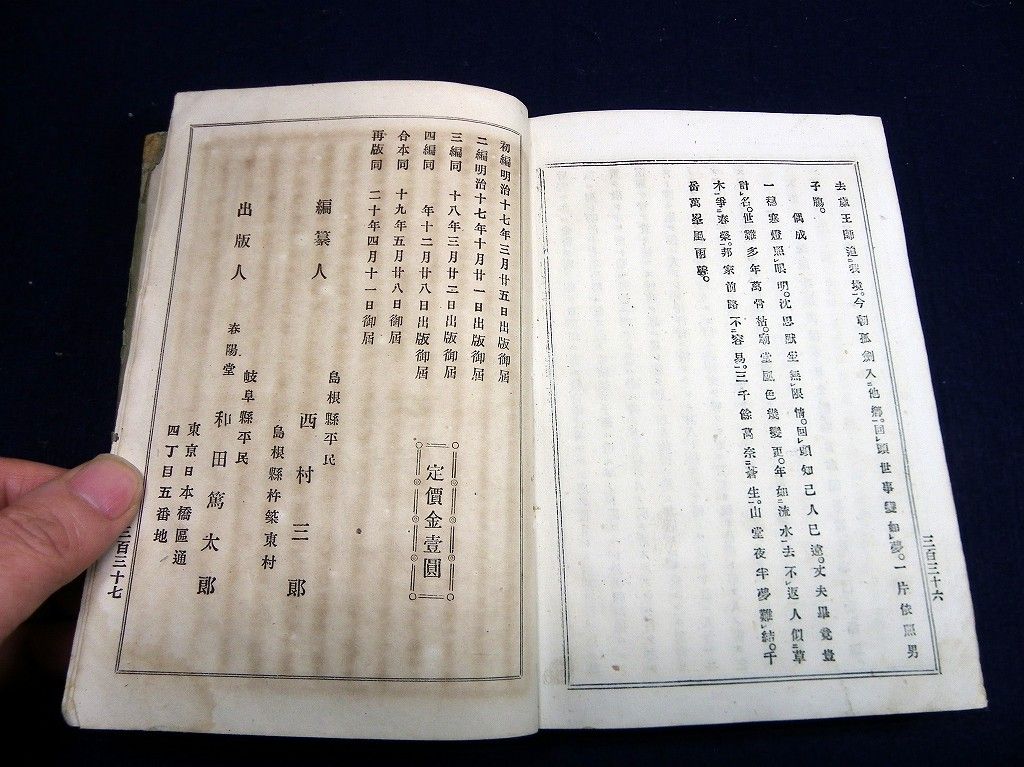 三百三十六
去歲王師迫我境。今朝孤劍入他鄉。回頭世事癡如夢。一片依照男
子膓。
偶成
一穗寒燈照眼明。沈思默坐無限情。回頭知己人已遠。丈夫畢竟豈
計名。世難多年萬骨枯。廟堂風色幾變更。年如流水去不返人似草
木爭春榮。邦家前路不容易。三千餘萬奈蒼生。山堂夜半夢難結。千
岳萬峯風雨聲。
初編明治十七年三月廿五日出版御屆
二編明治十七年十月廿一日出版御屆
三編同 十八年三月廿二日出版御屆
四編同 年十二月廿八日出版御屆
合本同 十九年五月廿八日御屆
再版同 二十年四月十一日御屆
定價金壹圓
編纂人
島根縣平民
西村三郎
島根縣杵築東村
出版人
岐阜縣平民
春陽堂 和田篤太郎
東京日本橋區通
四丁目五番地
三百三十七